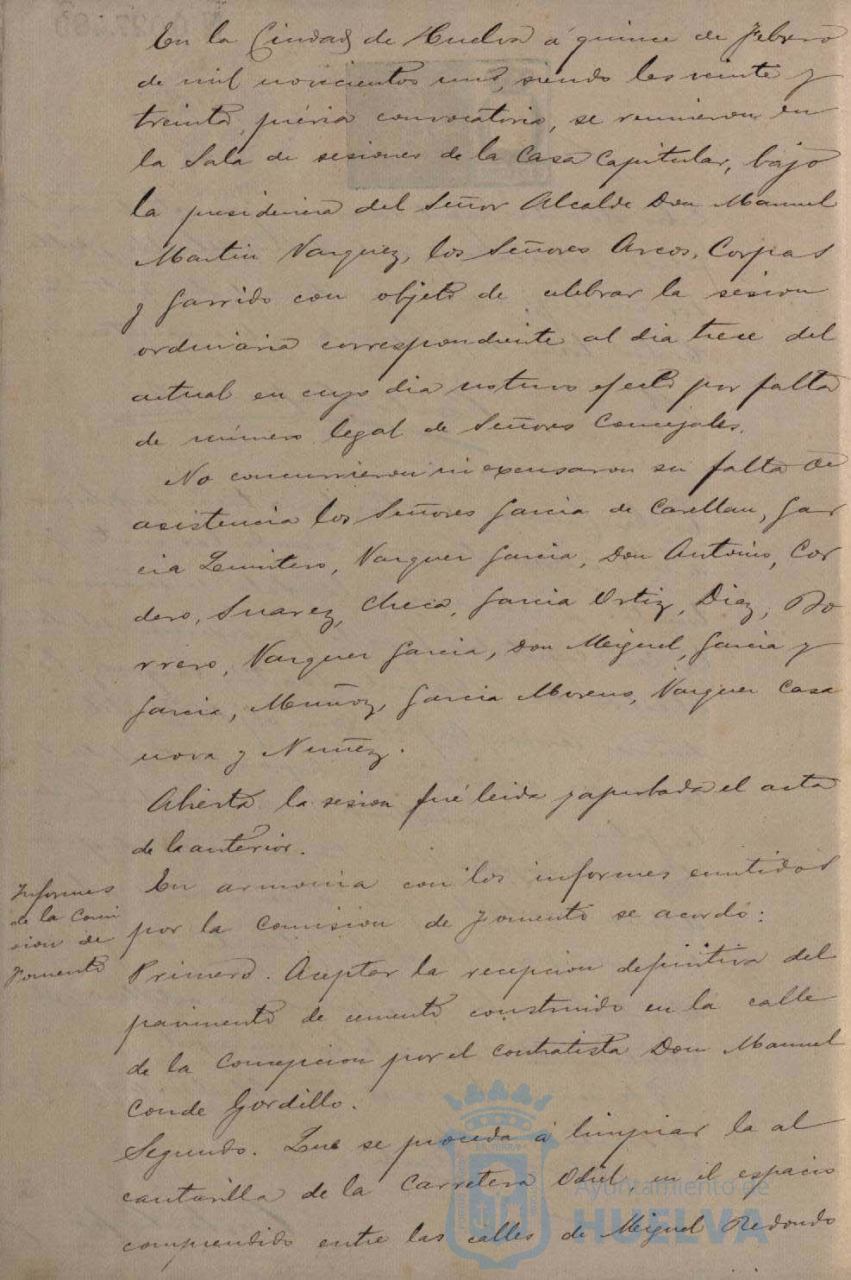 En la Ciudad de Huelva á quince de Febrero
de mil novecientos uno, siendo las veinte y
treinta, prévia convocatoria, se reunieron en
la Sala de sesiones de la Casa Capitular, bajo
la presidencia del Señor Alcalde Don Manuel
Martin Vazquez, los Señores Arcos, Corpas
y Garrido con objeto de celebrar la sesion
ordinaria correspondiente al dia trece del
actual en cuyo dia no tuvo efecto por falta
de número legal de Señores Concejales.
No concurrieron ni excusaron su falta de
asistencia los Señores Garcia de Carellan, Gar
cia Quintero, Vazquez Garcia, Don Antonio, Cor
dero, Suarez, Checa, Garcia Ortiz, Diaz, Bo
rrero, Vazquez Garcia, Don Miguel, Garcia y
Garcia, Muñoz, Garcia Moreno, Vazquez Casa
nova y Nuñez.
Abierta la sesion fué leida y aprobada el acta
de la anterior.
Informes
de la Comi
sion de
Fomento
En armonia con los informes emitidos
por la Comision de Fomento se acordó:
Primero. Aceptar la recepcion definitiva del
pavimento de cemento construido en la calle
de la Concepcion por el contratista Don Manuel
Conde Gordillo.
Segundo. Que se proceda á limpiar la al
cantarilla de la Carretera Odiel, en el espacio
comprendido entre las calles de Miguel Redondo
Ayuntamiento de
HUELVA